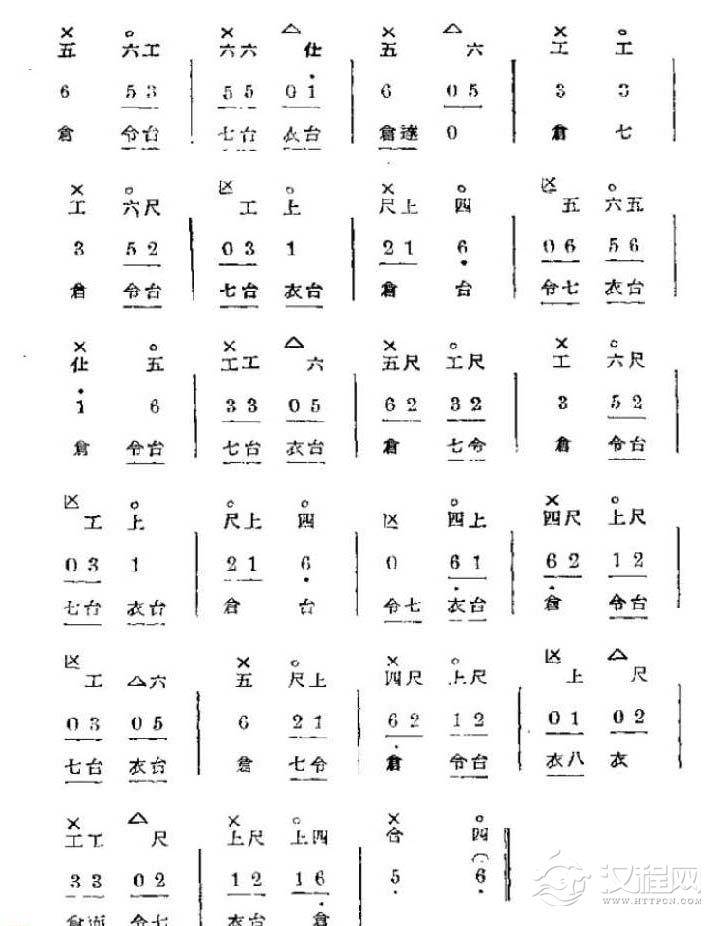 × ○ × △ × △ × ○
五 六工 六六 仕 五 六 工 工
6 53 | 55 01̇ | 6 05 | 3 3
倉 令台 七台 衣台 倉 0 倉 七
× ○ 区 ○ × ○ 区 ○
工 六尺 工 上 尺上 四 五 六五
3 52 | 03 1 | 21 6̣ | 06 56 |
倉 令台 七台 衣台 倉 台 令七 衣台
× ○ × △ × ○ × ○
仕 五 工工 六 五尺 工尺 工 六尺
1̇ 6 | 33 05 | 62 32 | 3 52 |
倉 令台 七台 衣台 倉 七令 倉 令台
区 ○ ○ ○ ○ × ○
工 上 尺上 四 区 四上 四尺 上尺
03 1 | 21 6̣ | 0 6̣1 | 6̣2 12 |
七台 衣台 倉 台 令七 衣台 倉 令台
区 × ○ × ○ 区 △
工 △六 五 尺上 四尺 上尺 上 尺
03 05 | 6 21 | 6̣2 12 | 01 02 |
七台 衣台 倉 七令 倉 令台 衣八 衣
× △ × ○ × ○
工工 尺 上尺 上四 合 四
33 02 | 12 16̣ | 5̣ 6̣ ‖
倉 令七 衣台 倉
汉程网
HTTPCN.COM